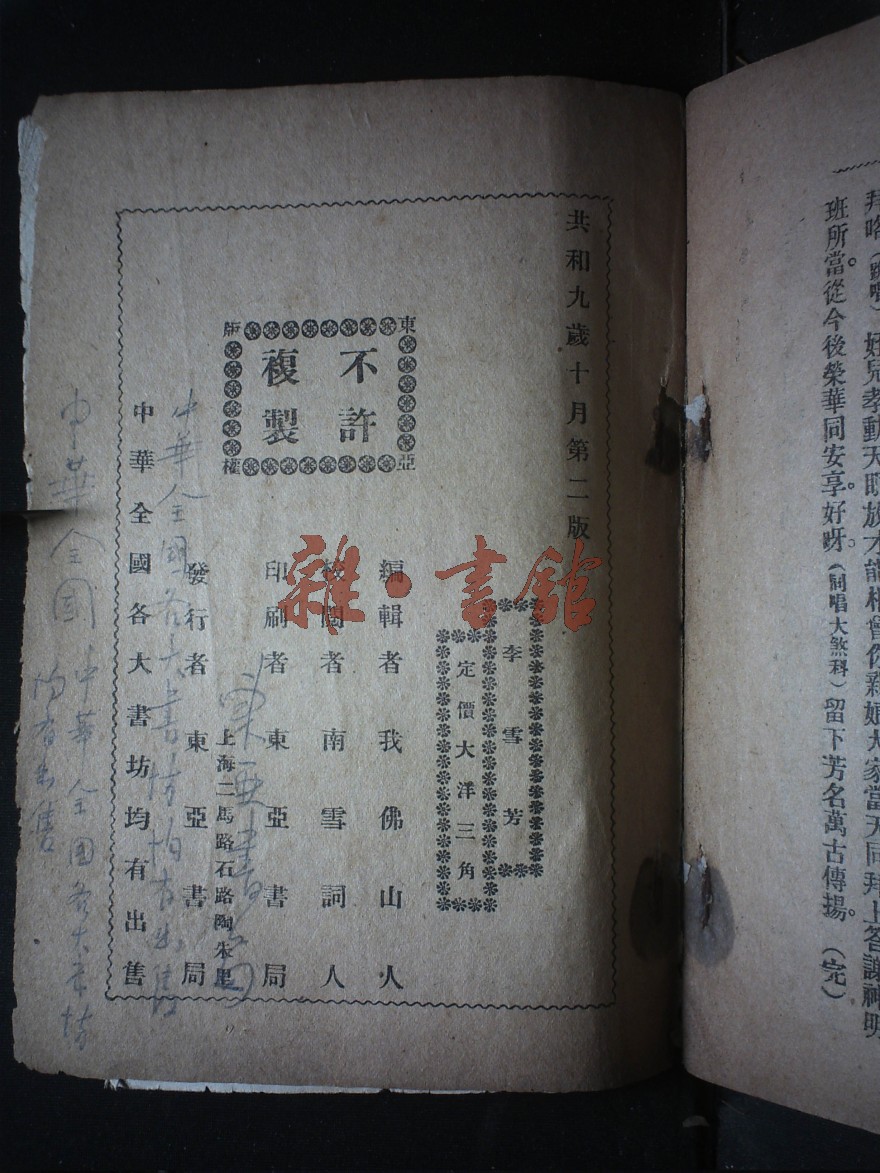 班所當。從今後榮華同安享好呀。(同唱大煞科)留下芳名萬古傳揚。 (完)
共和九歲十月第二版
李雪芳
定價大洋三角
東亞
版權
不許
複製
編輯者我佛山人
校閱者南雪詞人
印刷者東亞書局
上海二馬路石路陶朱里
發行者東亞書局
中華全國各大書坊均有出售
雜·書館
東亞書局
中華全國各大書坊均有出售
中華全國
中華全國各大書坊
均有出售